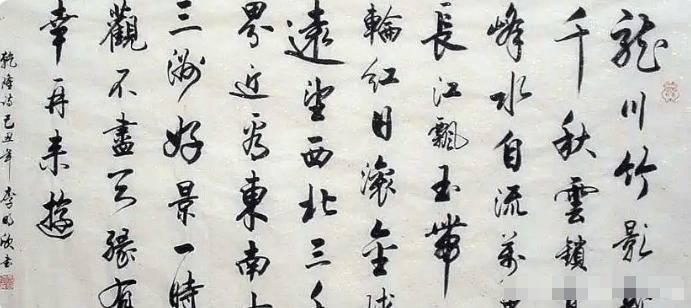 龍川竹影
千秋雲鎖
峰水自流萬
長江飄玉帶
輪紅日滾金球
遠望西北三千
界近看東南
三洲好景一時
觀不盡天緣有
幸再来遊
乾隆詩己丑年李明欣書